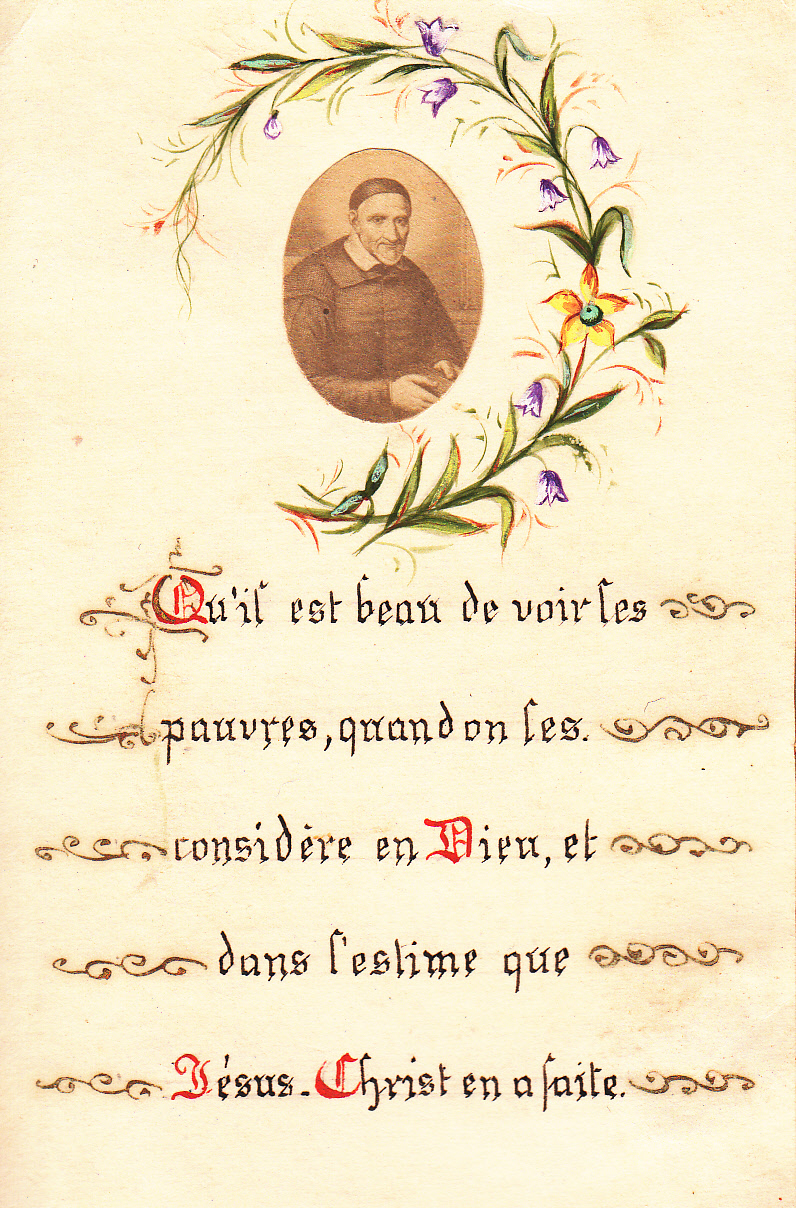 Qu'il est beau de voir les
pauvres, quand on les.
considère en Dieu, et
dans l'estime que
Jésus-Christ en a faite.